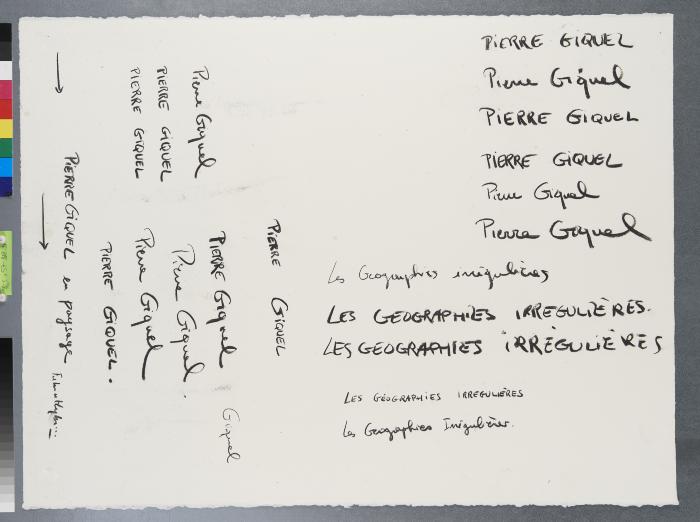 PIERRE GIQUEL
Pierre Giquel
PIERRE GIQUEL
PIERRE GIQUEL
Pierre Giquel
Pierre Giquel
Les Géographies irrégulières
LES GEOGRAPHIES IRREGULIÈRES.
LES GEOGRAPHIES IRRÉGULIÈRES
LES GÉOGRAPHIES IRREGULIÈRES
Les Geographies Irrégulières.
Pierre Giquel
PIERRE GIQUEL
PIERRE GIQUEL
PIERRE GIQUEL
PIERRE Giquel
Giquel
Pierre Giquel.
Pierre Giquel
PIERRE GIQUEL.
PIERRE GIQUEL en paysage